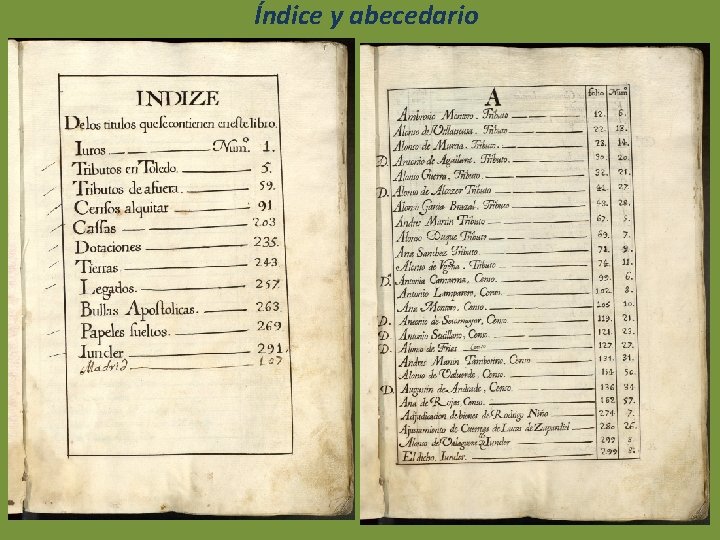 Índice y abecedario
INDIZE
De los titulos que se contienen en este libro.
Iuros Num.º 1.
Tributos en Toledo. 5.
Tributos de afuera. 59.
Censos alquitar 91
Cassas 203
Dotaciones 235.
Tierras 243
Legados. 257
Bullas Apostolicas. 263.
Papeles sueltos. 269
Iuncler 291.
Madrid 127
A
folio Num.º
Ambrosio Montoro, Tributo 12. 6.
Alonso de Villaseusa, Tributo 22. 13.
Alonso de Murcia, Tributo 23. 14.
D. Antonio de Aguilar, Tributo. 30. 20.
Alonso Guerra, Tributo 32. 21.
D. Alonso de Alcozer Tributo 41 27.
Alonso Garcia Tributo 42 28.
Andres Martin Tributo 67. 5.
Alonso Duque Tributo 69. 7.
Ana Sanchez Tributo 72. 9.
Alonso de Tributo 74. 11.
D.ª Antonia Censo 99. 6.
Antonio Lamparero, Censo. 102. 8.
Ana Montoro, Censo 105 10.
D. Antonio de Sotomayor, Censo 119. 21.
D. Antonio Sevillano, Censo 121. 23.
D. Alonso de Frias Censo 127. 27.
Andres Martin Tamborino, Censo 131. 31.
Alonso de Valuerde, Censo 154 56.
D. Augustin de Andrade, Censo 136 34
Ana de Rojas Censo. 162 57.
Adjudicacion de bienes de Rodrigo Niño 274 7.
Ajustamiento de Cuentas de Lucas de 280 26.
Alonso de Iuncler 292 8.
El dicho, Iuncler. 299 8.